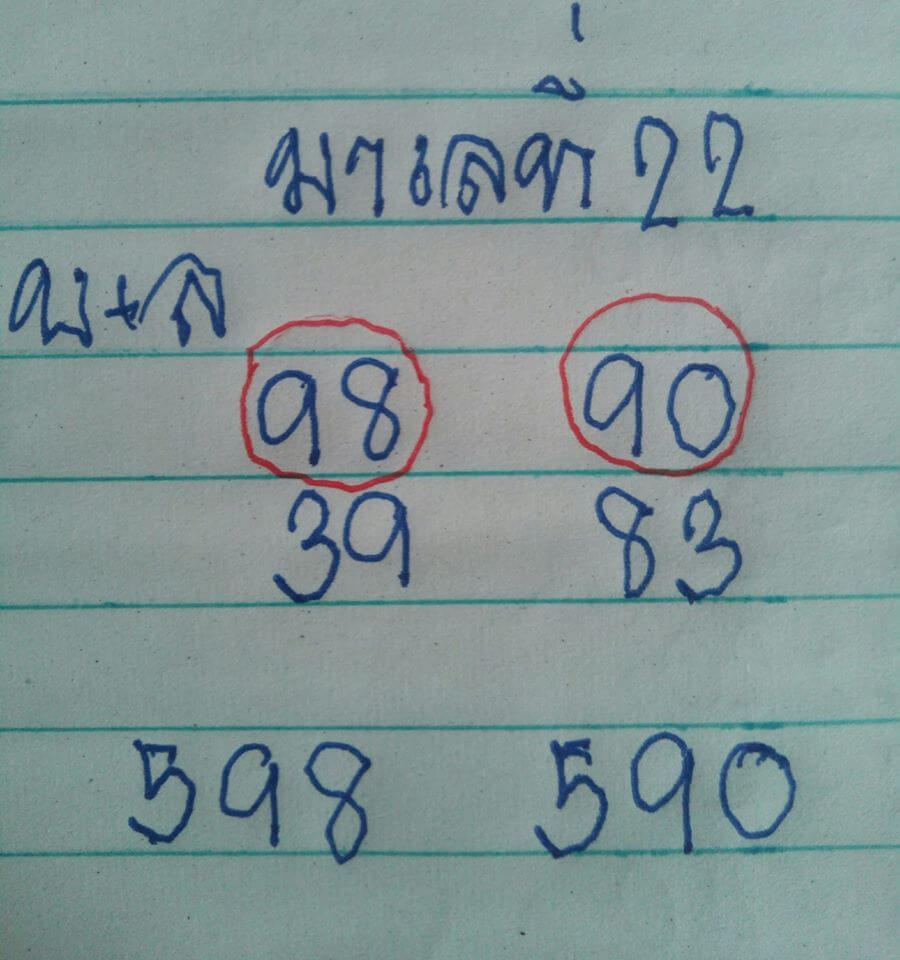 มาเลที่ 22
บ+ล
98 90
39 83
598 590